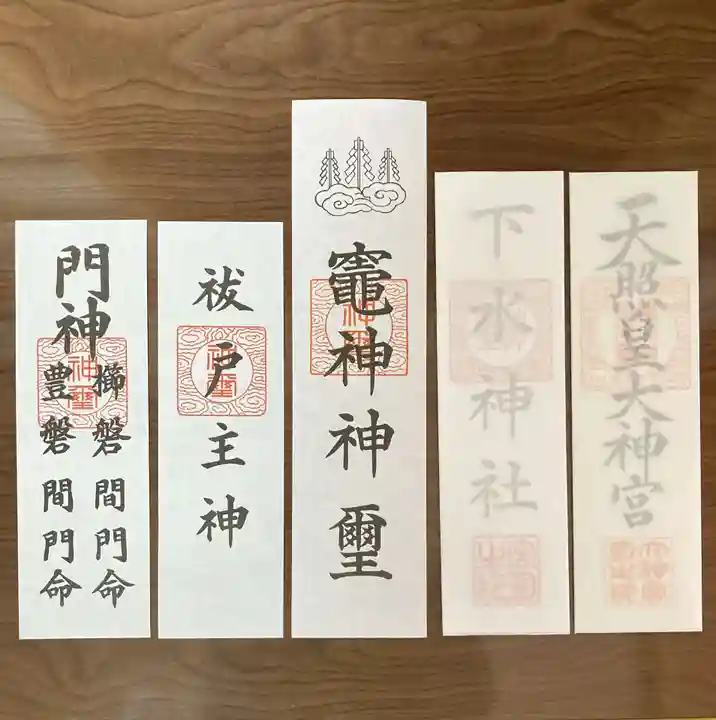 天照皇大神宮
下水神社
竈神神璽
神璽
祓戸主神
神璽
門神
櫛磐間門命
豊磐間門命
神璽